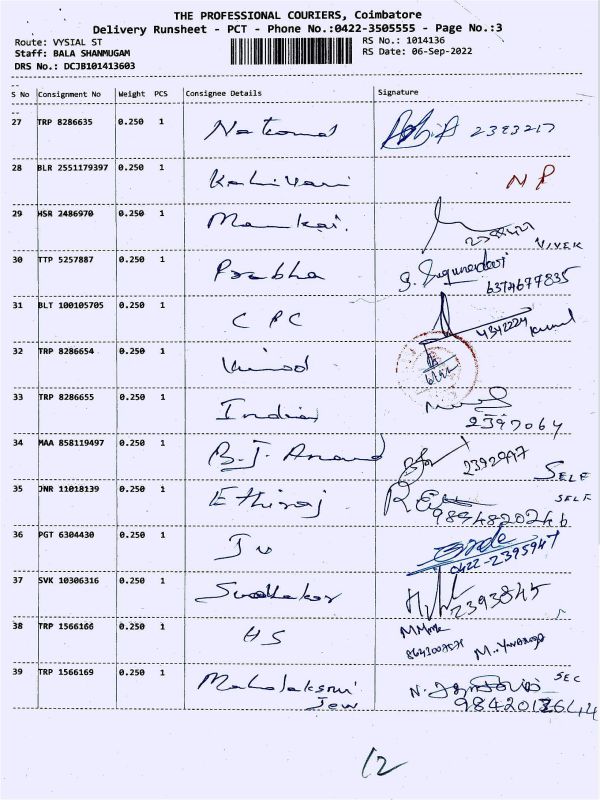 THE PROFESSIONAL COURIERS, Coimbatore
Delivery Runsheet - PCT - Phone No.:0422-3505555 - Page No.:3
Route: VYSIAL ST RS No.: 1014136
Staff: BALA SHANMUGAM RS Date: 06-Sep-2022
DRS No.: DCJB101413603
S No Consignment No Weight PCS Consignee Details Signature
27 TRP 8286635 0.250 1 National 2393217
28 BLR 2551179397 0.250 1 Kahivani NP
29 HSR 2486970 0.250 1 VIVEK
30 TTP 5257887 0.250 1 Prabha S. Sugunadevi
6374677835
31 BLT 100105705 0.250 1 CPC 4342224 Kumal
32 TRP 8286654 0.250 1 Vinod
33 TRP 8286655 0.250 1 Indian
2397064
34 MAA 858119497 0.250 1 B.J. Anand 2392947 SELF
35 JNR 11018139 0.250 1 Ethiraj SELF
9894820246
36 PGT 6304430 0.250 1
0422-2395947
37 SVK 10306316 0.250 1 Sudhakar 2393845
38 TRP 1566166 0.250 1 HS
39 TRP 1566169 0.250 1 Mahalaksmi N. SEC
Jew
12